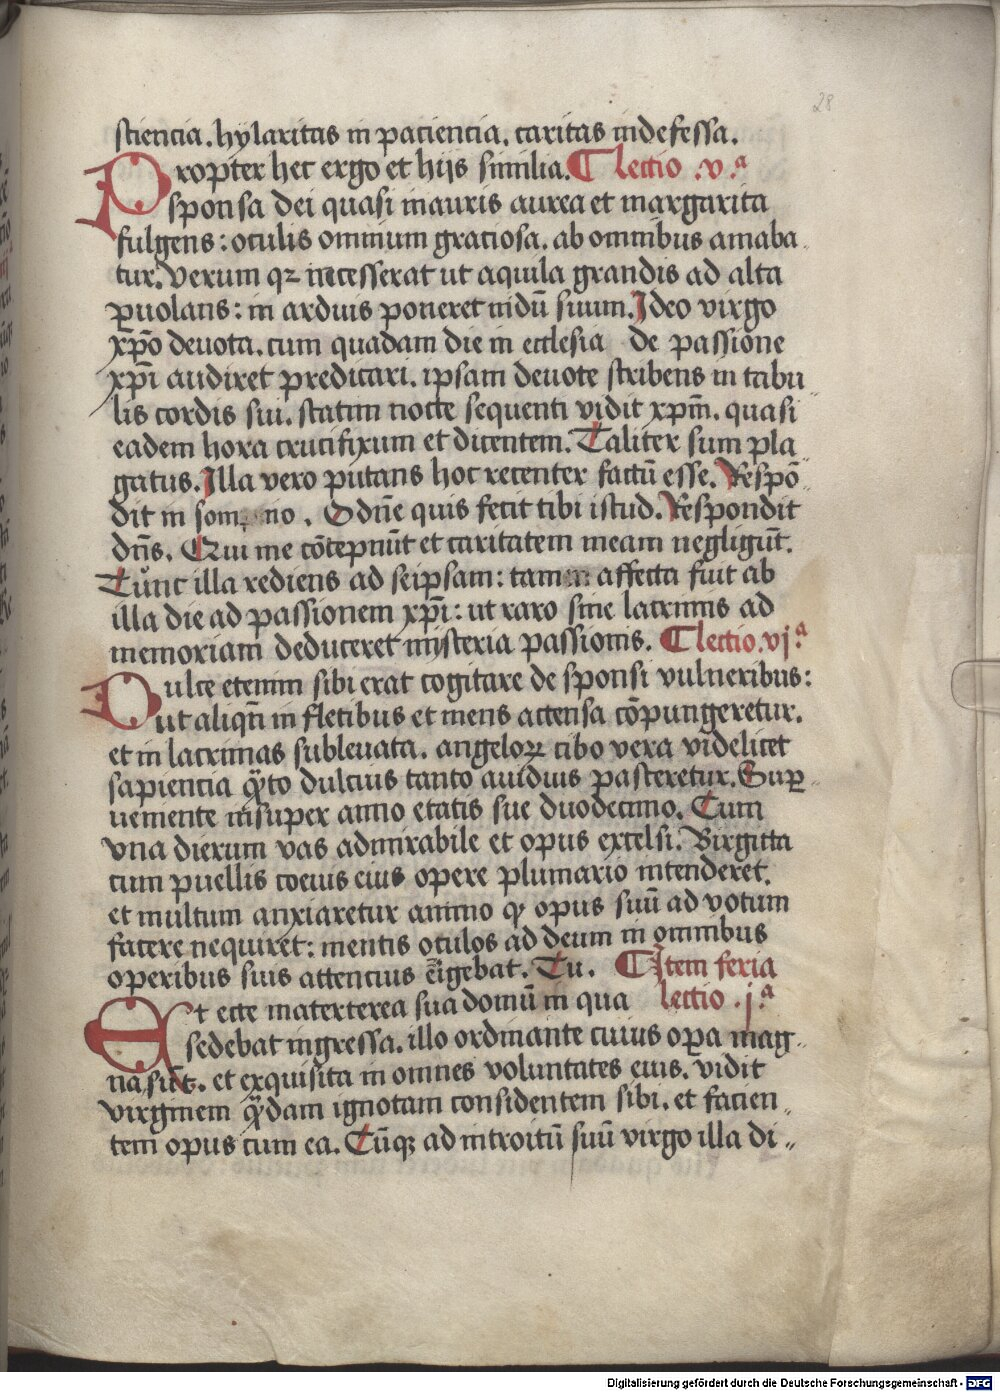 28
sciencia. hylaritas in paciencia. caritas indefessa.
Propter hec ergo et hijs similia. Lectio .v.ª
sponsa dei quasi mauris aurea et margarita
fulgens: oculis omnium graciosa. ab omnibus amaba
tur. Verum qꝛ necesserat ut aquila grandis ad alta
ꝑuolans: in arduis poneret nidū suum. Ideo virgo
xp̄o deuota. cum quadam die in ecclesia de passione
xp̄i audiret predicari. ipsam deuote scribens in tabu
lis cordis sui. statim nocte sequenti vidit xp̄m. quasi
eadem hora crucifixum et dicentem. Taliter sum pla
gatus. Illa vero putans hoc recenter factū esse. Respō
dit in sompno. O dn̄e quis fecit tibi istud. Respondit
dn̄s. Qui me cōtepnūt et caritatem meam negligūt.
Tunc illa rediens ad seipsam: tam affecta fuit ab
illa die ad passionem xp̄i: ut raro sine lacrimis ad
memoriam deduceret misteria passionis. Lectio. vj.ª
Dulce etenim sibi erat cogitare de sponsi vulneribus:
ut aliqn̄ in fletibus et mens accensa cōpungeretur.
et in lacrimas subleuata. angeloꝝ cibo vera videlicet
sapiencia qͣ̄to dulcius tanto auidius pasceretur. Suꝑ
ueniente insuper anno etatis sue duodecimo. Cum
vna dierum vas admirabile et opus excelsi. Birgitta
cum puellis coeuis eius opere plumario intenderet.
et multum anxiaretur animo qꝫ opus suū ad votum
facere nequiret: mentis oculos ad deum in omnibus
operibus suis attencius erigebat. Tu. Item feria
Et ecce matertera sua domū in qua lectio .j.ª
sedebat ingressa. illo ordinante cuius oꝑa mag
na sūt. et exquisita in omnes voluntates eius. vidit
virginem qͣ̄dam ignotam considentem sibi. et facien
tem opus cum ea. Cūqꝫ ad introitū suū virgo illa di
Digitalisierung gefördert durch die Deutsche Forschungsgemeinschaft - DFG